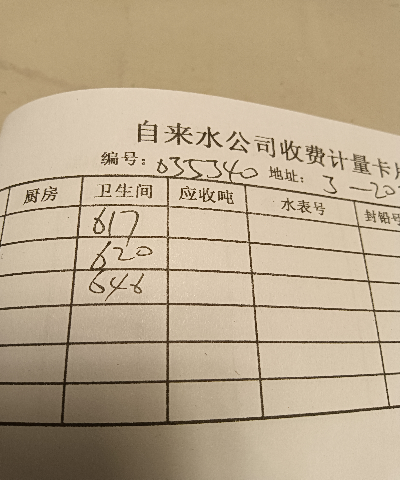 自来水公司收费计量卡片
编号：035340 地址：3－20
厨房 卫生间 应收吨 水表号 封铅号
617
620
646